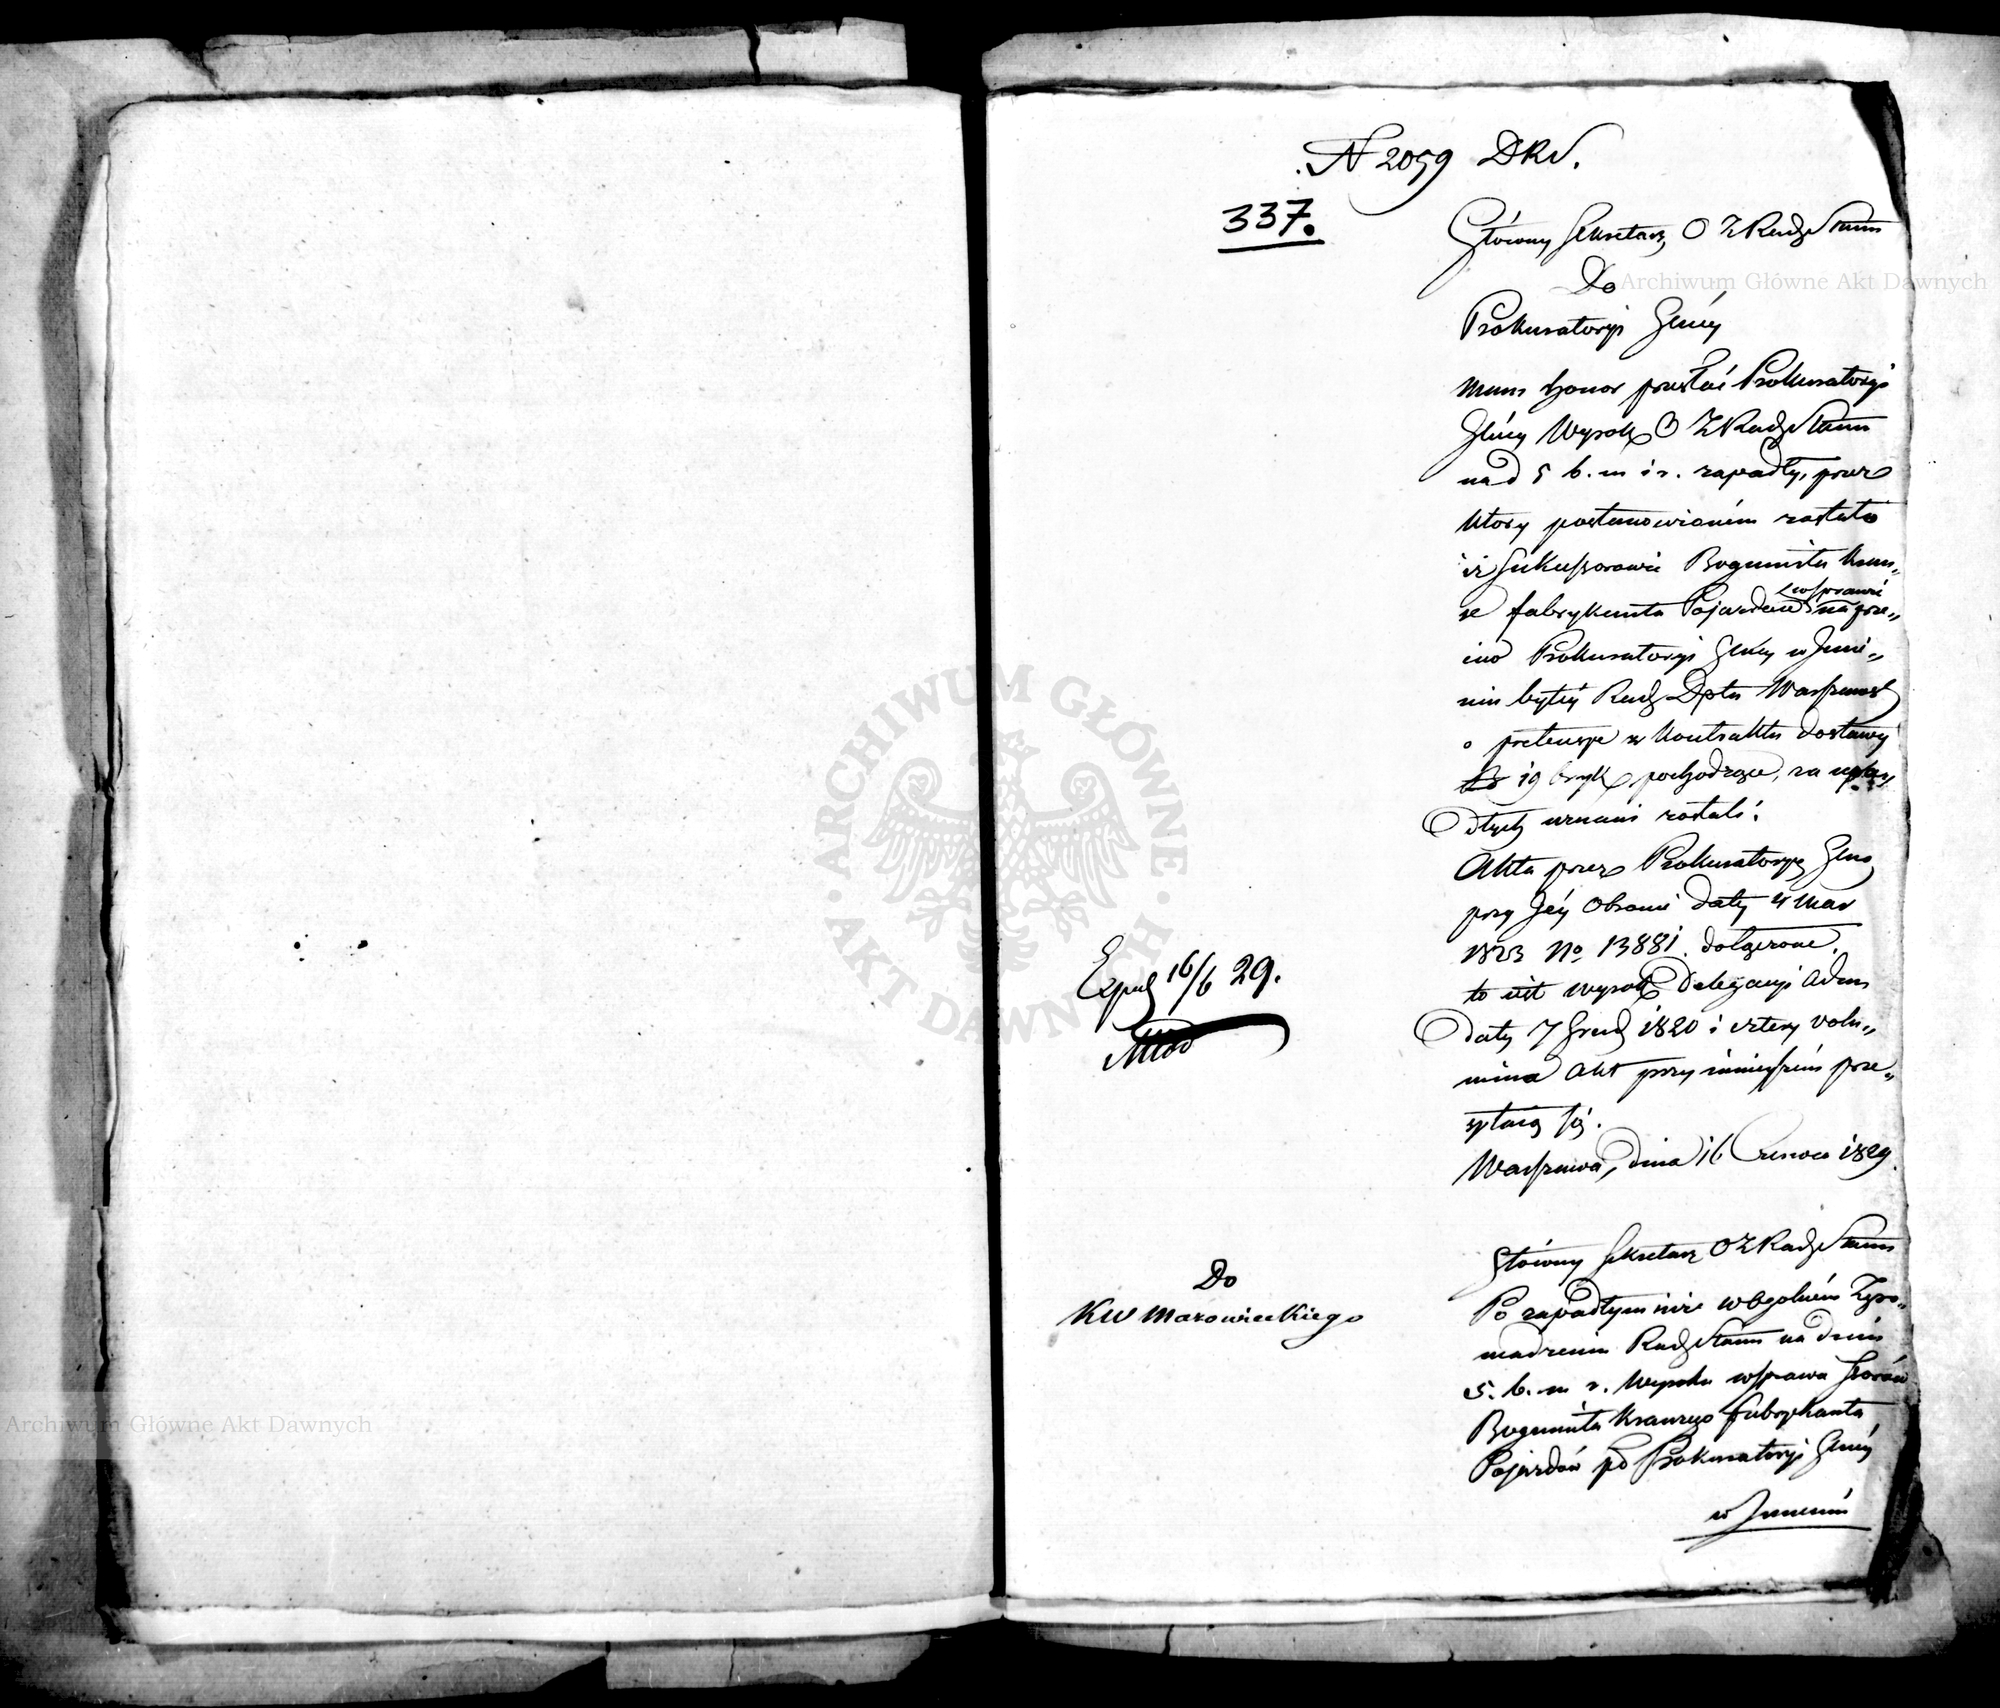 N 2059 DRS.
337.
Główny Sekretarz O Z Rady Stanu
Do
Prokuratoryi Glney
Mam honor przesłać Prokuratoryi
Glney Wyrok O Z Rady Stanu
na d 5 b. m i r. zapadły, przez
który postanowioném zostało
iż Sukcessorowie Bogumiła Krau„
se fabrykanta Pojazdów w sprawie
na prze„
ciw Prokuratoryi Glney w Imie„
niu byłey Rady Dptu Warszaws
o pretensye z kontraktu dostawy
19 bryk pochodzące, za upa
dłych uznani zostali.
Akta przez Prokuratoryę Glną
przy Jey Obronie daty 4 Mar
1823 No 13881. dołączone,
to iest wyrok Delegacyi Adm
daty 7 Grud 1820 i cztery volu„
mina Akt przy ninieyszém prze„
syłaią się.
Warszawa, dnia 16 Czerwca 1829.
Exped 16/6 29.
Główny Sekretarz O Z Rady Stanu
Do
KW Mazowieckiego
Po zapadłym iuż w Ogólném Zgro„
madzeniu Rady Stanu na dniu
5. b. m r. Wyroku w sprawie
Bogumiła Krauzego fabrykanta
Pojazdów pko Prokuratoryi Glney
w Imieniu
Archiwum Główne Akt Dawnych
ARCHIWUM GŁÓWNE AKT DAWNYCH
Archiwum Główne Akt Dawnych